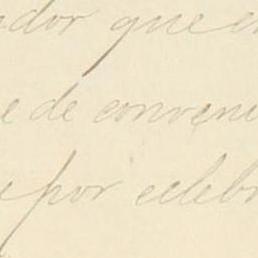 ador que en
e de conveni
e por celebr